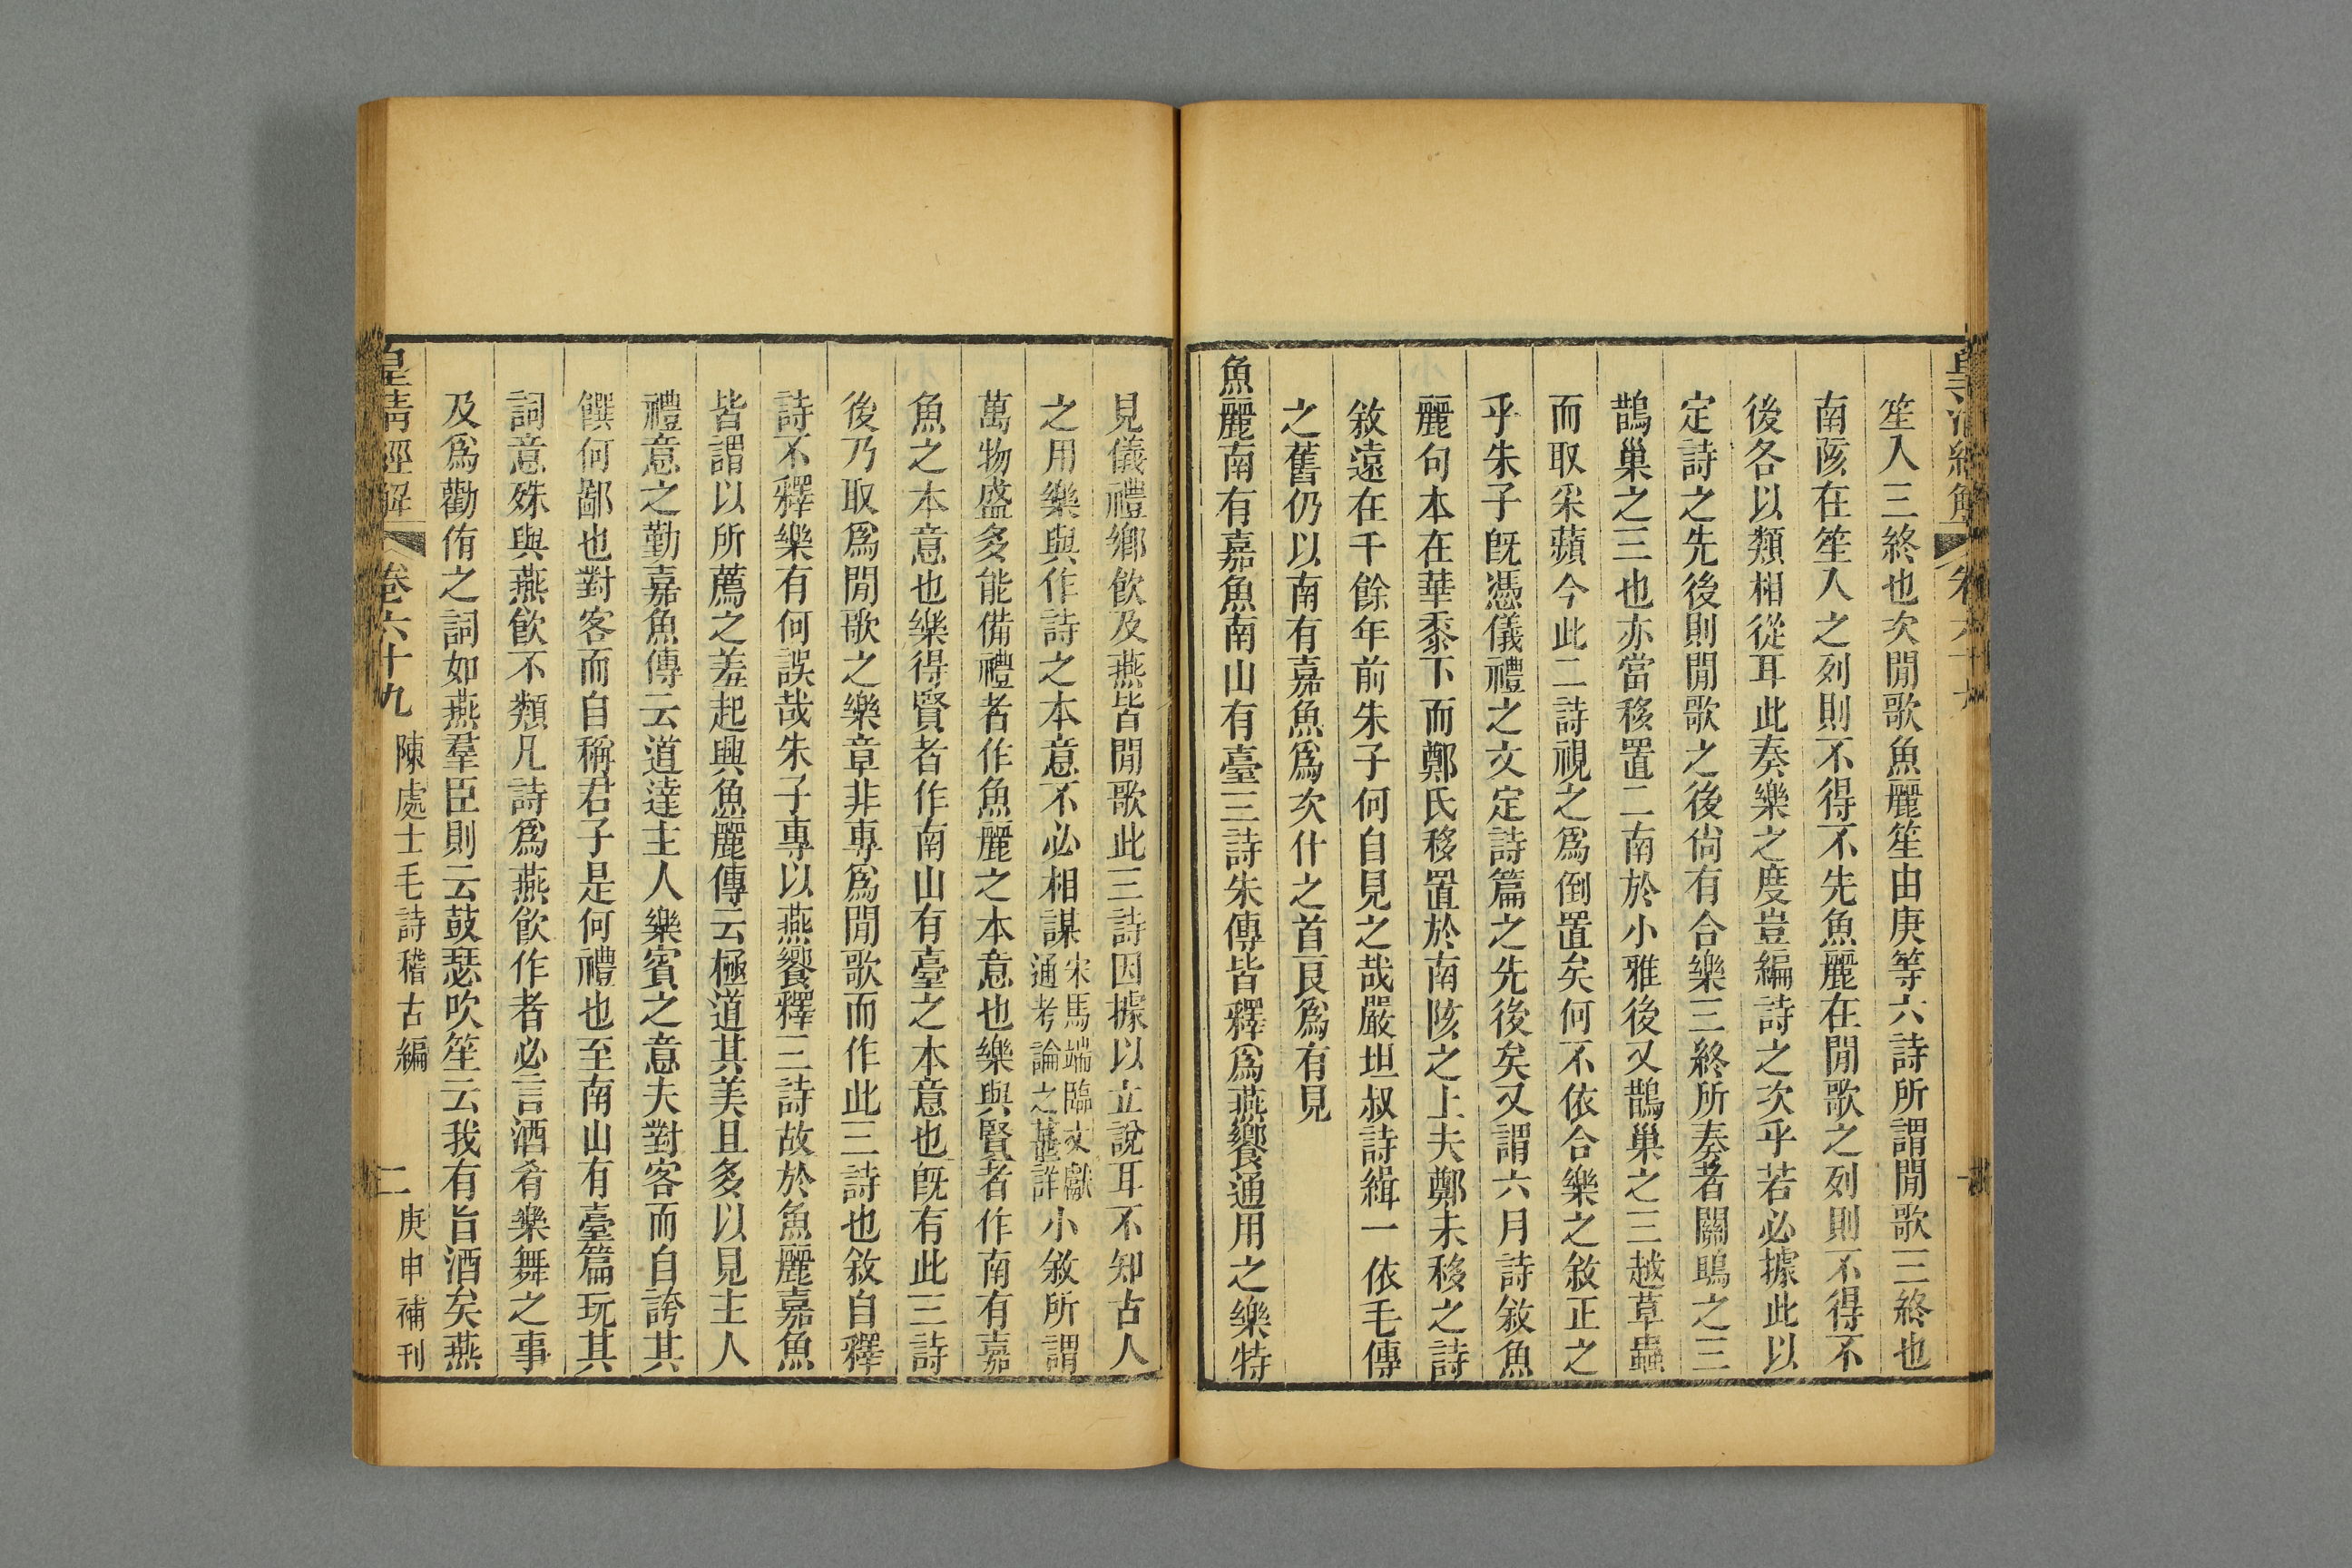 笙入三終也次閒歌魚麗笙由庚等六詩所謂閒歌三終也
南陔在笙入之列則不得不先魚麗在閒歌之列則不得不
後各以類相從耳此奏樂之度豈編詩之次乎若必據此以
定詩之先後則閒歌之後尙有合樂三終所奏者關鴡之三
鵲巢之三也亦當移置二南於小雅後又鵲巢之三越草蟲
而取采蘋今此二詩視之爲倒置矣何不依合樂之敘正之
乎朱子旣憑儀禮之文定詩篇之先後矣又謂六月詩敘魚
麗句本在華黍下而鄭氏移置於南陔之上夫鄭未移之詩
敘遠在千餘年前朱子何自見之哉嚴坦叔詩緝一依毛傳
之舊仍以南有嘉魚爲次什之首艮爲有見
魚麗南有嘉魚南山有臺三詩朱傳皆釋爲燕饗通用之樂特
見儀禮鄉飮及燕皆閒歌此三詩因據以立說耳不知古人
之用樂與作詩之本意不必相謀宋馬端臨文獻通考論之甚詳小敘所謂
萬物盛多能備禮者作魚麗之本意也樂與賢者作南有嘉
魚之本意也樂得賢者作南山有臺之本意也旣有此三詩
後乃取爲閒歌之樂章非專爲閒歌而作此三詩也敘自釋
詩不釋樂有何誤哉朱子專以燕饗釋三詩故於魚麗嘉魚
皆謂以所薦之羞起興魚麗傳云極道其美且多以見主人
禮意之勤嘉魚傳云道達主人樂賓之意夫對客而自誇其
饌何鄙也對客而自稱君子是何禮也至南山有臺篇玩其
詞意殊與燕飮不類凡詩爲燕飮作者必言酒肴樂舞之事
及爲勸侑之詞如燕羣臣則云鼓瑟吹笙云我有旨酒矣燕
皇淸經解 卷六十九 陳處士毛詩稽古編 二 庚申補刊